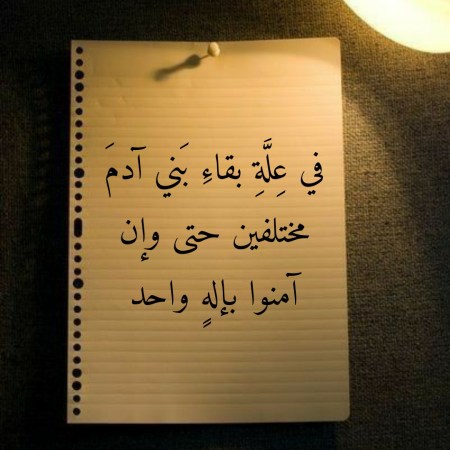 في عِلَّةِ بقاءِ بَني آدمَ
مختلفين حتى وإن
آمنوا بإلهٍ واحد